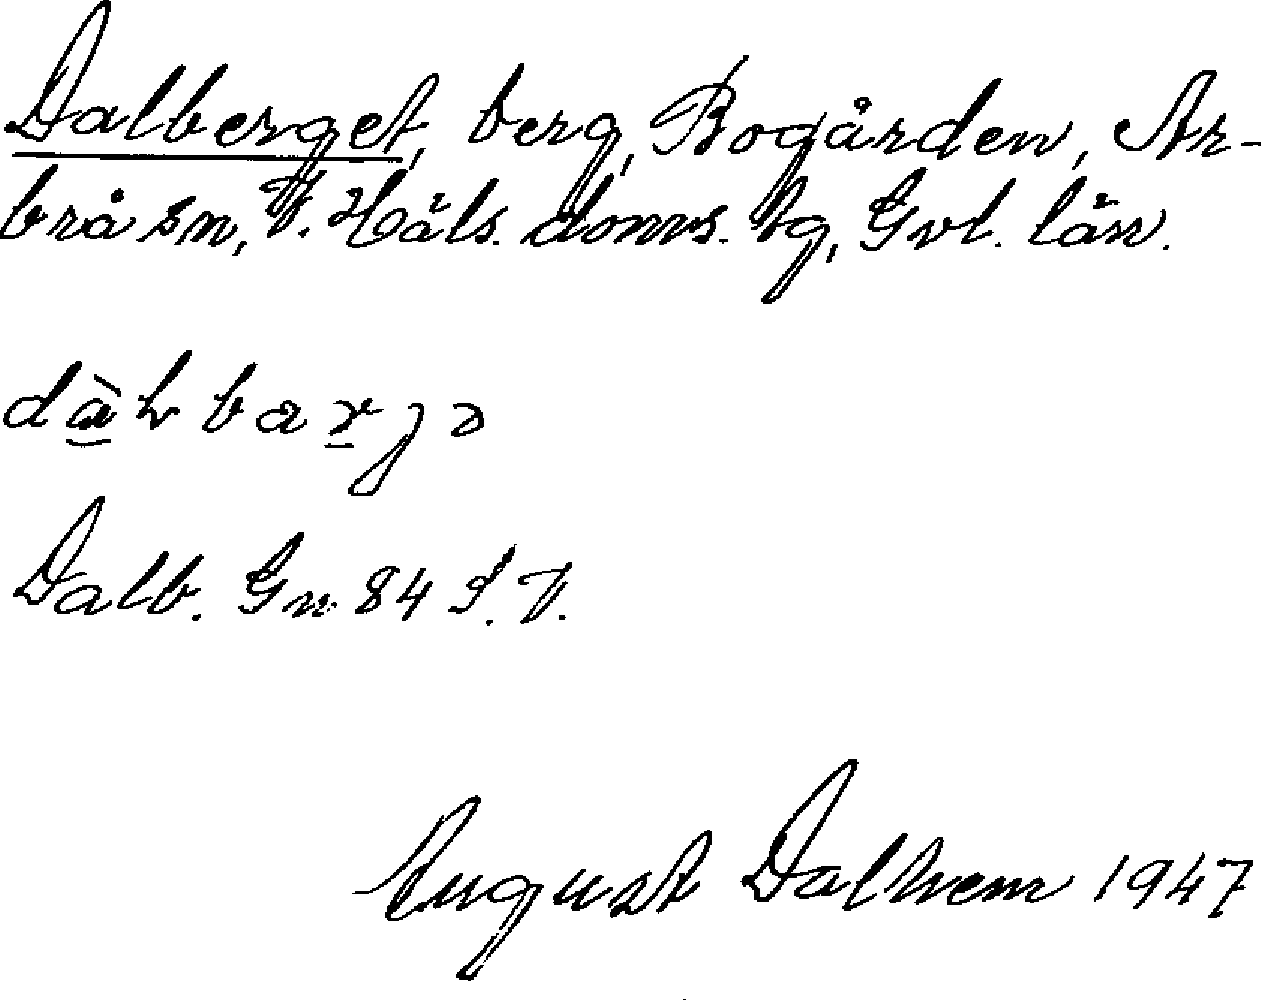 Dalberget, berg, Bogården, Ar-
brå sn, V. Häls. doms. tg, Gvl. län.
Dalb. Gn 84 S. V.
August Dalhem 1947